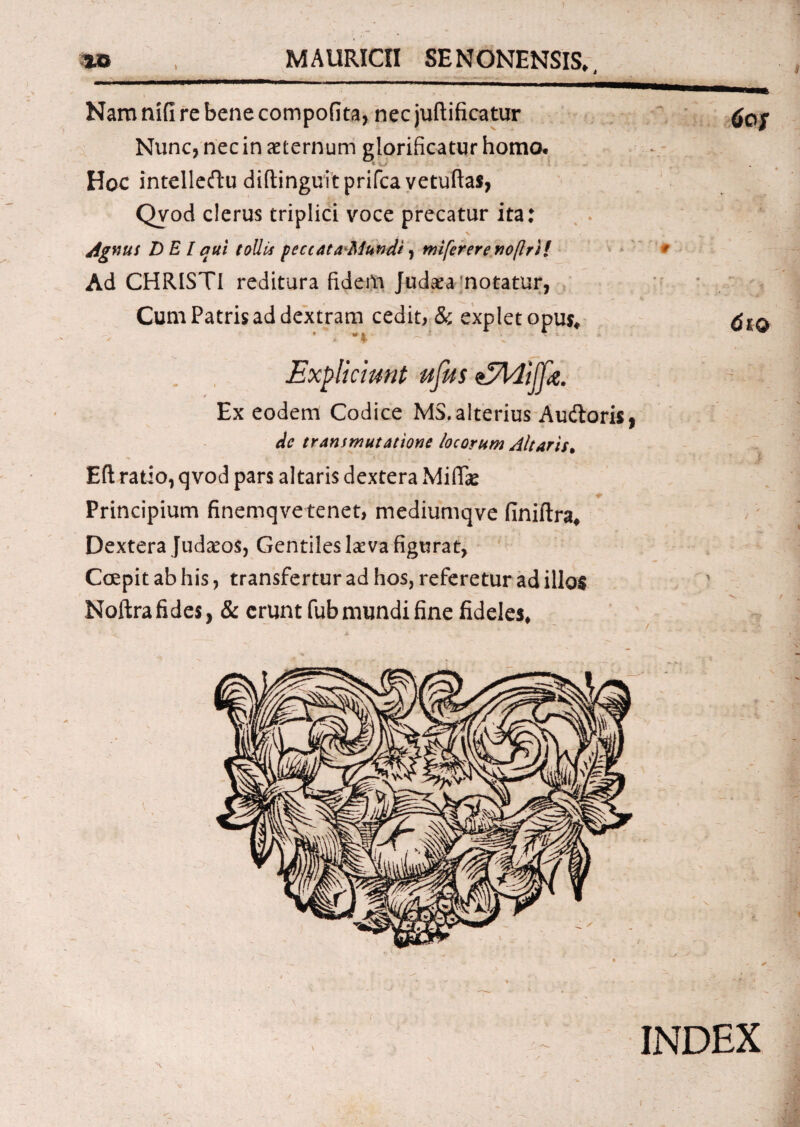 20 MAURICII SENONENSIS.
Nam niſi re bene compoſita, nec juſtificatur 605
Nunc, nec in æternum glorificatur homo.
Hoc intellectu diſtinguit priſca vetuſtas,
Qvod clerus triplici voce precatur ita:
Agnus DEI qui tollis peccata Mundi, miſerere noſtri!
Ad CHRISTI reditura fidem Judæa notatur,
Cum Patris ad dextram cedit, & explet opus. 610
Expliciunt uſus Miſſæ.
Ex eodem Codice MS. alterius Auctoris,
de transmutatione locorum Altaris.
Eſt ratio, qvod pars altaris dextera Miſſæ
Principium finemqve tenet, mediumqve ſiniſtra.
Dextera Judæos, Gentiles læva figurat,
Cœpit ab his, transfertur ad hos, referetur ad illos
Noſtra fides, & erunt ſub mundi fine fideles.
INDEX